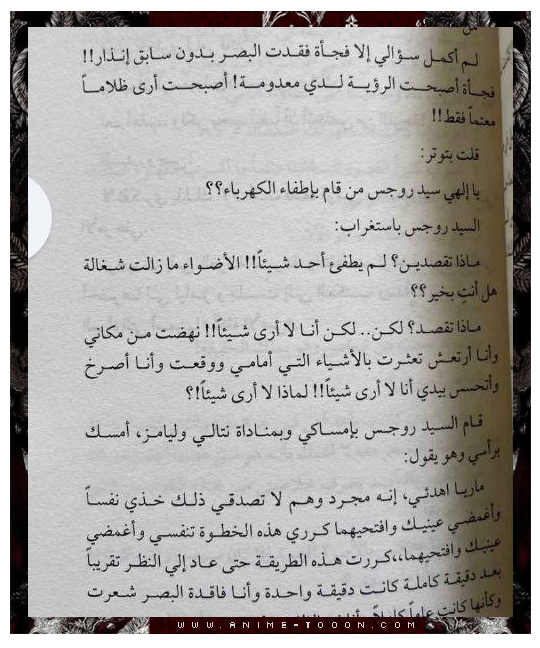 من
لم أكمل سؤالي إلا فجأة فقدت البصر بدون سابق إنذار!!
فجأة أصبحت الرؤية لدي معدومة! أصبحت أرى ظلاماً
معتماً فقط!!
قلت بتوتر:
يا إلهي سيد روجس من قام بإطفاء الكهرباء؟؟
السيد روجس باستغراب:
ماذا تقصدين؟ لم يطفئ أحد شيئاً!! الأضواء ما زالت شغالة
هل أنتِ بخير؟؟
ماذا تقصد؟ لكن.. لكن أنا لا أرى شيئاً!! نهضت من مكاني
وأنا أرتعش تعثرت بالأشياء التي أمامي ووقعت وأنا أصرخ
وأتحسس بيدي أنا لا أرى شيئاً!! لماذا لا أرى شيئاً!؟
قام السيد روجس بإمساكي وبمناداة نتالي وليامز، أمسك
برأسي وهو يقول:
ماريا اهدئي، إنه مجرد وهم لا تصدقي ذلك خذي نفساً
وأغمضي عينيك وافتحيهما كرري هذه الخطوة تنفسي وأغمضي
عينيك وافتحيهما،،كررت هذه الطريقة حتى عاد إلي النظر تقريباً
بعد دقيقة كاملة كانت دقيقة واحدة وأنا فاقدة البصر شعرت
وكأنها كانت عاماً كاملاً
WWW.ANIME-TOOON.COM